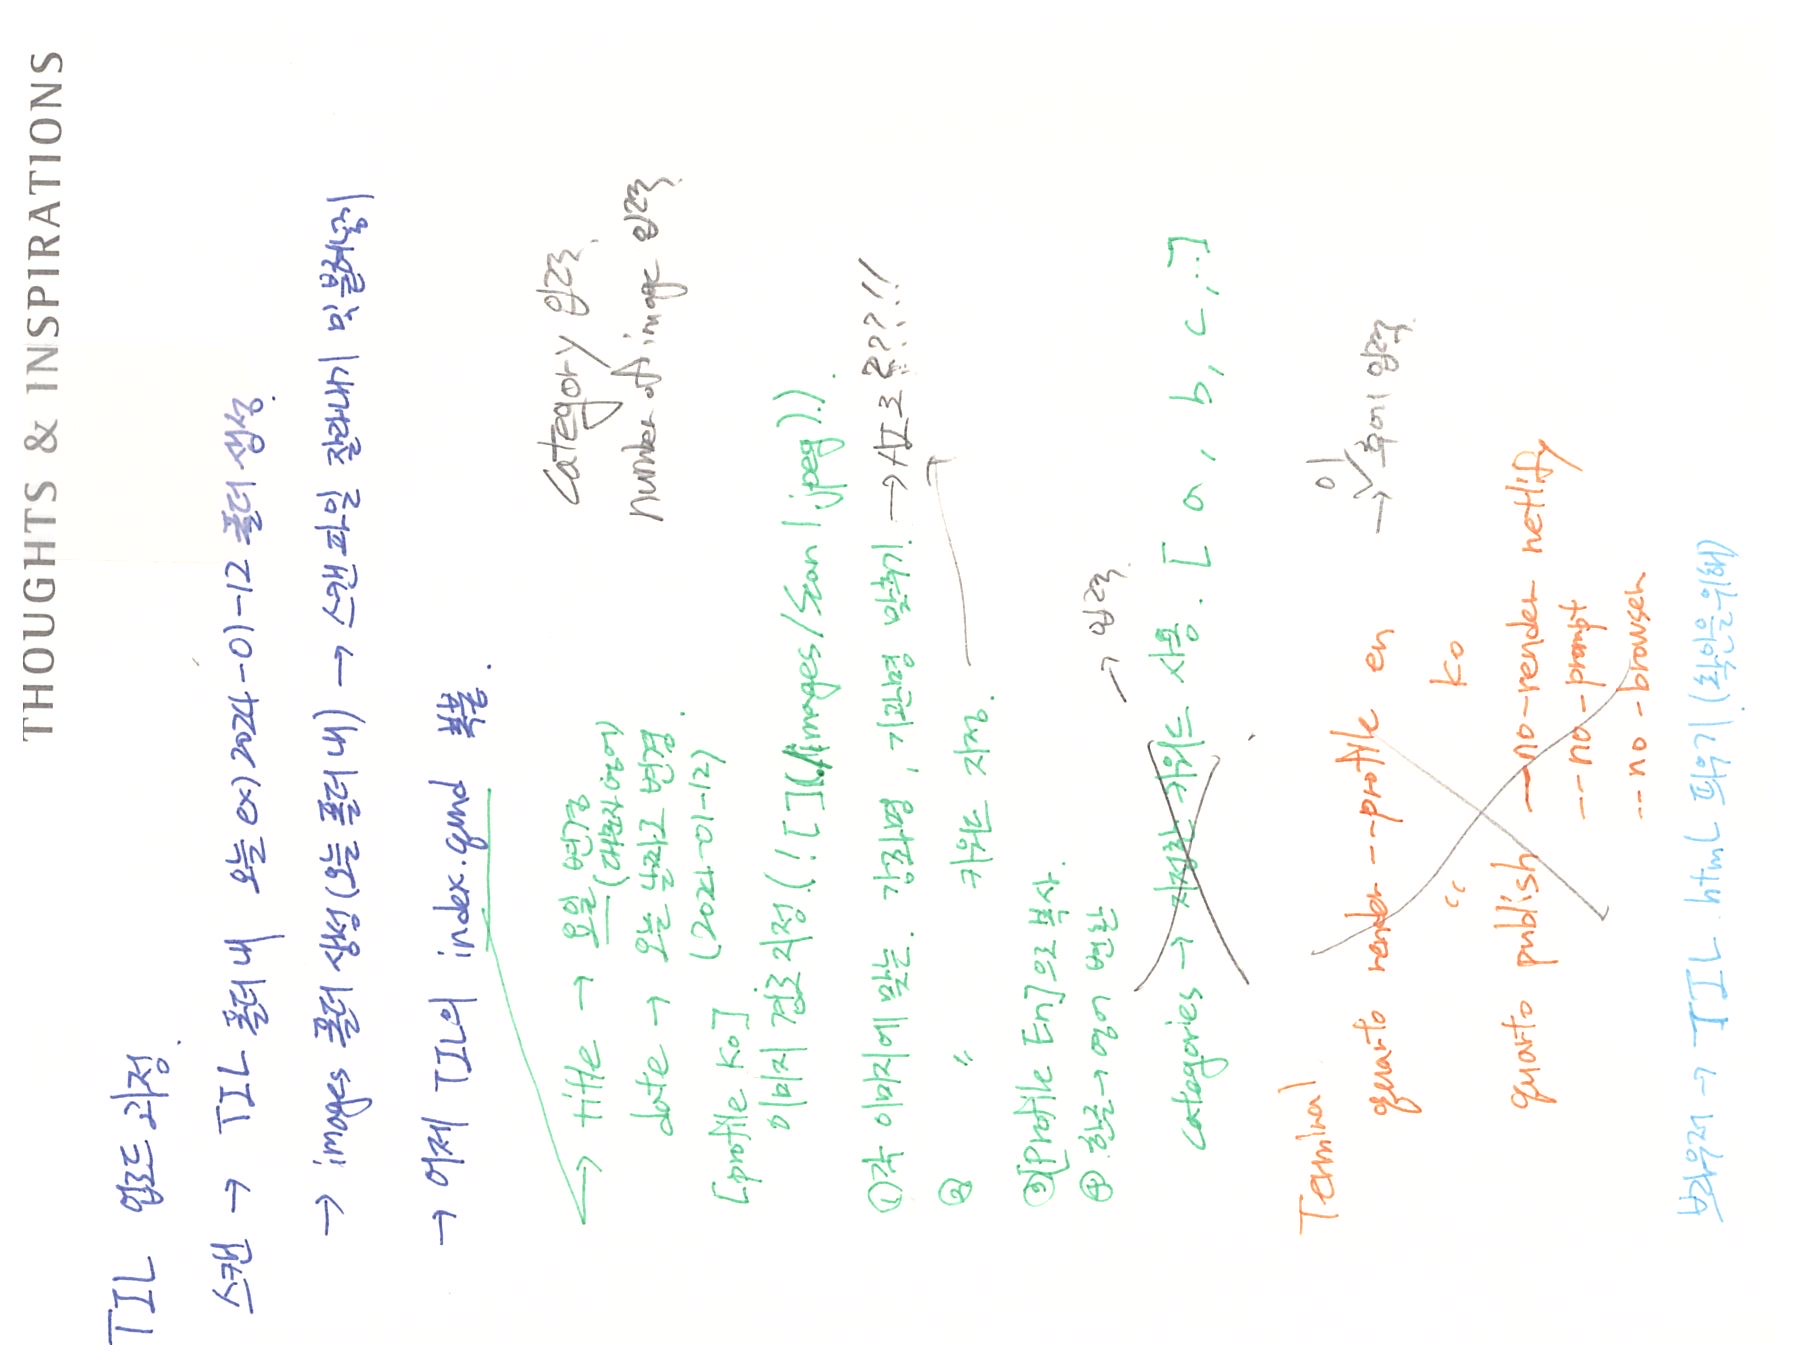 THOUGHTS & INSPIRATIONS
TIL 업로드 과정.
스캔 → TIL 폴더 내 오늘 ex) 2024-01-12 폴더 생성.
→ images 폴더 생성 (오늘 폴더 내) → 스캔파일 잘라내기 및 붙혀넣기
→ 어제 TIL의 index.qmd 복붙.
→ title → 요일 변경
(대문자 영어)
date → 오늘 날짜로 변경.
(2024-01-12)
category 입력.
number of image 입력.
[profile Ko].
이미지 경로 지정. (![](./images/Scan 1.jpeg)).
① 각 이미지에 맞는. 강좌명, 기관명 맞추기. → AI로???!!
② " 키워드 지정.
③ [Profile En]으로 복사.
④ 한글 → 영어 변환
→ 입력.
categories → 지정한 키워드 사용. [a, b, c, ..]
Terminal
quarto render --profile en
→ 이후에 입력.
" ko
quarto publish --no-render netlify
--no-prompt
--no-browser
브라우저 → TIL.html 띄우기. (확인을 위해)